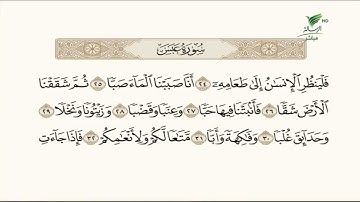 سُورَةُ عَبَسَ
فَلْيَنظُرِ الْإِنسَانُ إِلَىٰ طَعَامِهِ ٢٤ أَنَّا صَبَبْنَا الْمَاءَ صَبًّا ٢٥ ثُمَّ شَقَقْنَا
الْأَرْضَ شَقًّا ٢٦ فَأَنبَتْنَا فِيهَا حَبًّا ٢٧ وَعِنَبًا وَقَضْبًا ٢٨ وَزَيْتُونًا وَنَخْلًا ٢٩
وَحَدَائِقَ غُلْبًا ٣٠ وَفَاكِهَةً وَأَبًّا ٣١ مَّتَاعًا لَّكُمْ وَلِأَنْعَامِكُمْ ٣٢ فَإِذَا جَاءَتِ